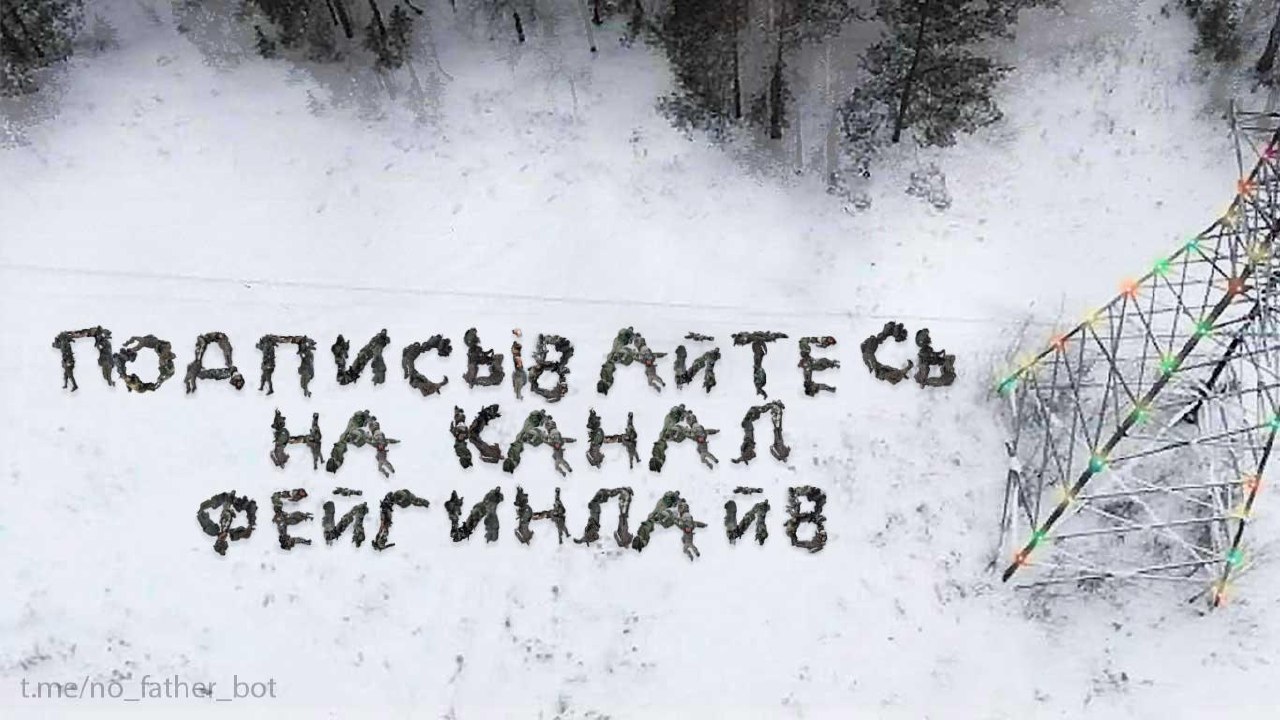 ПОДПИСЫВАЙТЕСЬ
НА КАНАЛ
ФЕЙГИНЛАЙВ
t.me/no_father_bot